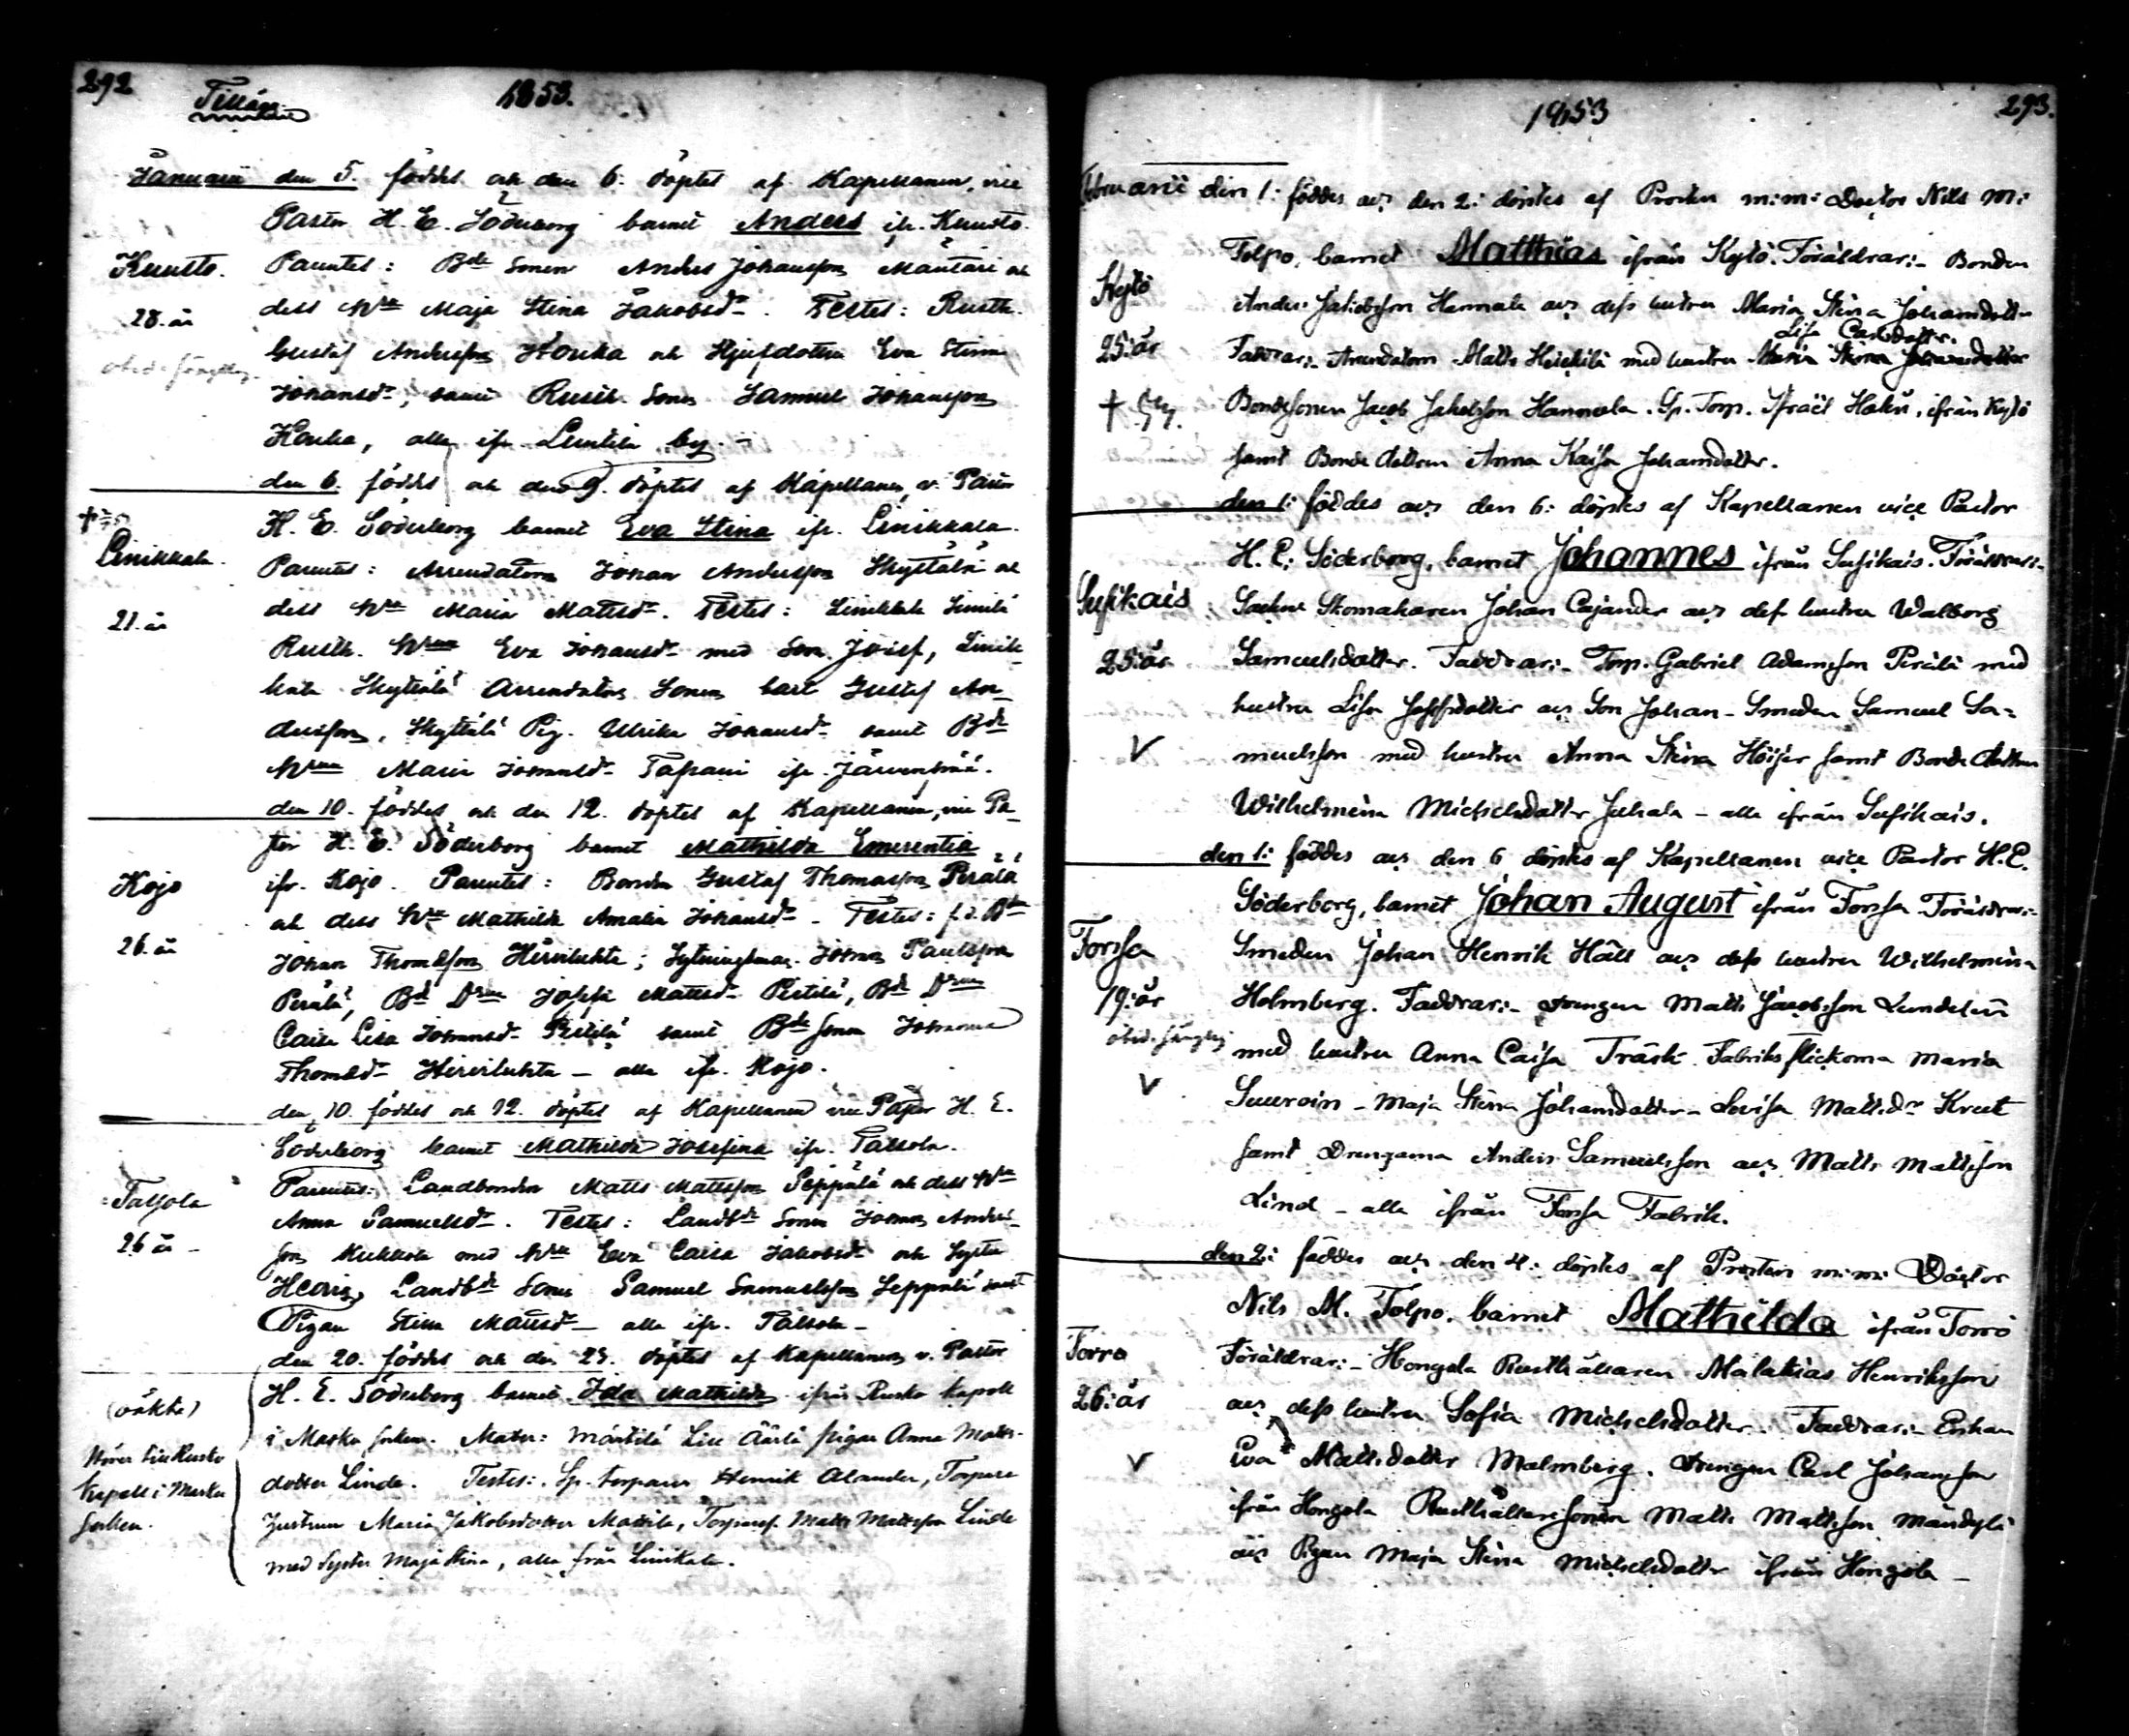 292
Tillägg
1853.
Januarii den 5. föddes och den 6. döptes af Kapellanen, vice
Pastor H. E. Söderborg barnet Anders ifr. Kuusto.
Kuusto.
Parentes: Bde Sonen Anders Johansson Mäntäri och
28. år
dess Hru Maja Stina Jakobsdr. Testes: Rusth.
Gustaf Andersson Houka och Eva Stina
Johansdr, samt Rusth. Sonen Samuel Johansson
Houka, alla ifr. by.
den 6. föddes och den 9. döptes af Kapellanen, v. Pastor
H. E. Söderborg barnet Eva Stina ifr. Linikkala.
Linikkala.
Parentes: Arrendatorn Johan Andersson Skyttälä och
dess Hru Maria Mattsdr. Testes: Linikkala Simila
21. år
Rusth. Hrun Eva Johansdr med Son Josef, Linik-
kala Skyttälä Arrendators Sonen Carl Gustaf An-
dersson, Skyttälä Pig. Ulrika Johansdr samt Bde
Hrun Maria Johansdr Tapani ifr. Järvenpää.
den 10. föddes och den 12. döptes af Kapellanen, vice Pa-
stor H. E. Söderborg barnet Mathilda Emerentia
Kojo
ifr. Kojo. Parentes: Bonden Gustaf Thomasson Perälä
och dess Hru Mathilda Amalia Johansdr - Testes: f.d. Bde
26. år
Johan Thomasson Hirviluhta; Johan Paulsson
Perälä, Bde Drun Josefa Mattsdr Pietilä, Bde Drun
Caisa Lisa Johansdr Pietilä samt Bde Johanna
Thomasdr Hirviluhta - alla ifr. Kojo.
den 10. föddes och 12. döptes af Kapellanen vice Pastor H. E.
Söderborg barnet Mathilda Josefina ifr. Talsola.
Talsola
Parentes: Landbonden Matts Mattsson Seppälä och dess Hru
Anna Samuelsdr. Testes: Landbde Sonen Johan Anders-
26 år -
son Kukkola med Hru Eva Caisa Jakobsdr och Syster
Landbde Sonen Samuel Samuelsson Seppälä samt
Pigan Stina Mattsdr - alla ifr. Talsola -
den 20. föddes och den 23. döptes af Kapellanen v. Pastor
H. E. Söderborg barnet Ida Mathilda ifrån Rusko Kapell
(oäkta)
i Masku socken. Mater: Mäntilä Pigan Anna Matts-
Hörer till Rusko
Kapell i Masku
dotter Linde. Testes: Sp. torparen Henrik Alander, Torpare
Socken.
hustrun Maria Jakobsdotter Mattila, Matts Mattsson Linde
med Syster Maja Stina, alla från Linikkala.
1853
293.
Februarii den 1: föddes och den 2: döptes af Prosten m:m: Doctor Nils M:
Tolpo, barnet Matthias ifrån Kylö. Föräldrar:- Bonden
Kylö
Anders Jakobsson Hannula och dess hustru Maria Stina Johansdotter
Lisa Carlsdotter.
25: år
Faddrar:- Arrendatorn Matts Heikkilä med hustru Maria Stina Johansdotter
Bondesonen Jacob Jakobsson Hannula. Sp. Torp. Israël Haku, ifrån Kylö
samt Bonde dottren Anna Kaisa Johansdotter.
den 1: föddes och den 6: döptes af Kapellanen vice Pastor
H. E. Söderborg, barnet Johannes ifrån Susikais. Föräldrar:-
Susikais
Socken Skomakaren Johan Cajander och dess hustru Walborg
25: år
Samuelsdotter. Faddrar:- Torp. Gabriel Adamsson Perälä med
hustru Lisa Josefsdotter och Son Johan - Smeden Samuel Sa-
V
muelsson med hustru Anna Stina Höijer samt Bonde dottren
Wilhelmina Michelsdotter Juhala - alla ifrån Susikais.
den 1: föddes och den 6 döptes af Kapellanen vice Pastor H. E.
Söderborg, barnet Johan August ifrån Forssa. Föräldrar:-
Forssa
Smeden Johan Henrik Häll och dess hustru Wilhelmina
19: år
Holmberg. Faddrar:- Drengen Matts Jacobsson Lundelin
med hustru Anna Caisa Träsk. Fabriks flickorna Maria
V
Suuroin - Maja Stina Johansdotter - Lovisa Mattsdr Krut
samt Drengarna Anders Samuelsson och Matts Mattsson
Lind - alla ifrån Forssa Fabrik.
den 2: föddes och den 4: döptes af Prosten m:m: Doctor
Nils M. Tolpo, barnet Mathilda ifrån Torro
Torro
Föräldrar:- Hongola Rusthållaren Malakias Henriksson
26: år
och dess hustru Sofia Michelsdotter. Faddrar:- Enkan
V
Eva Mattsdotter Malmberg. Drengen Carl Johansson
ifrån Hongola Rusthållaresonen Matts Mattsson Mändylä
och Pigan Maja Stina Michelsdotter ifrån Hongola -